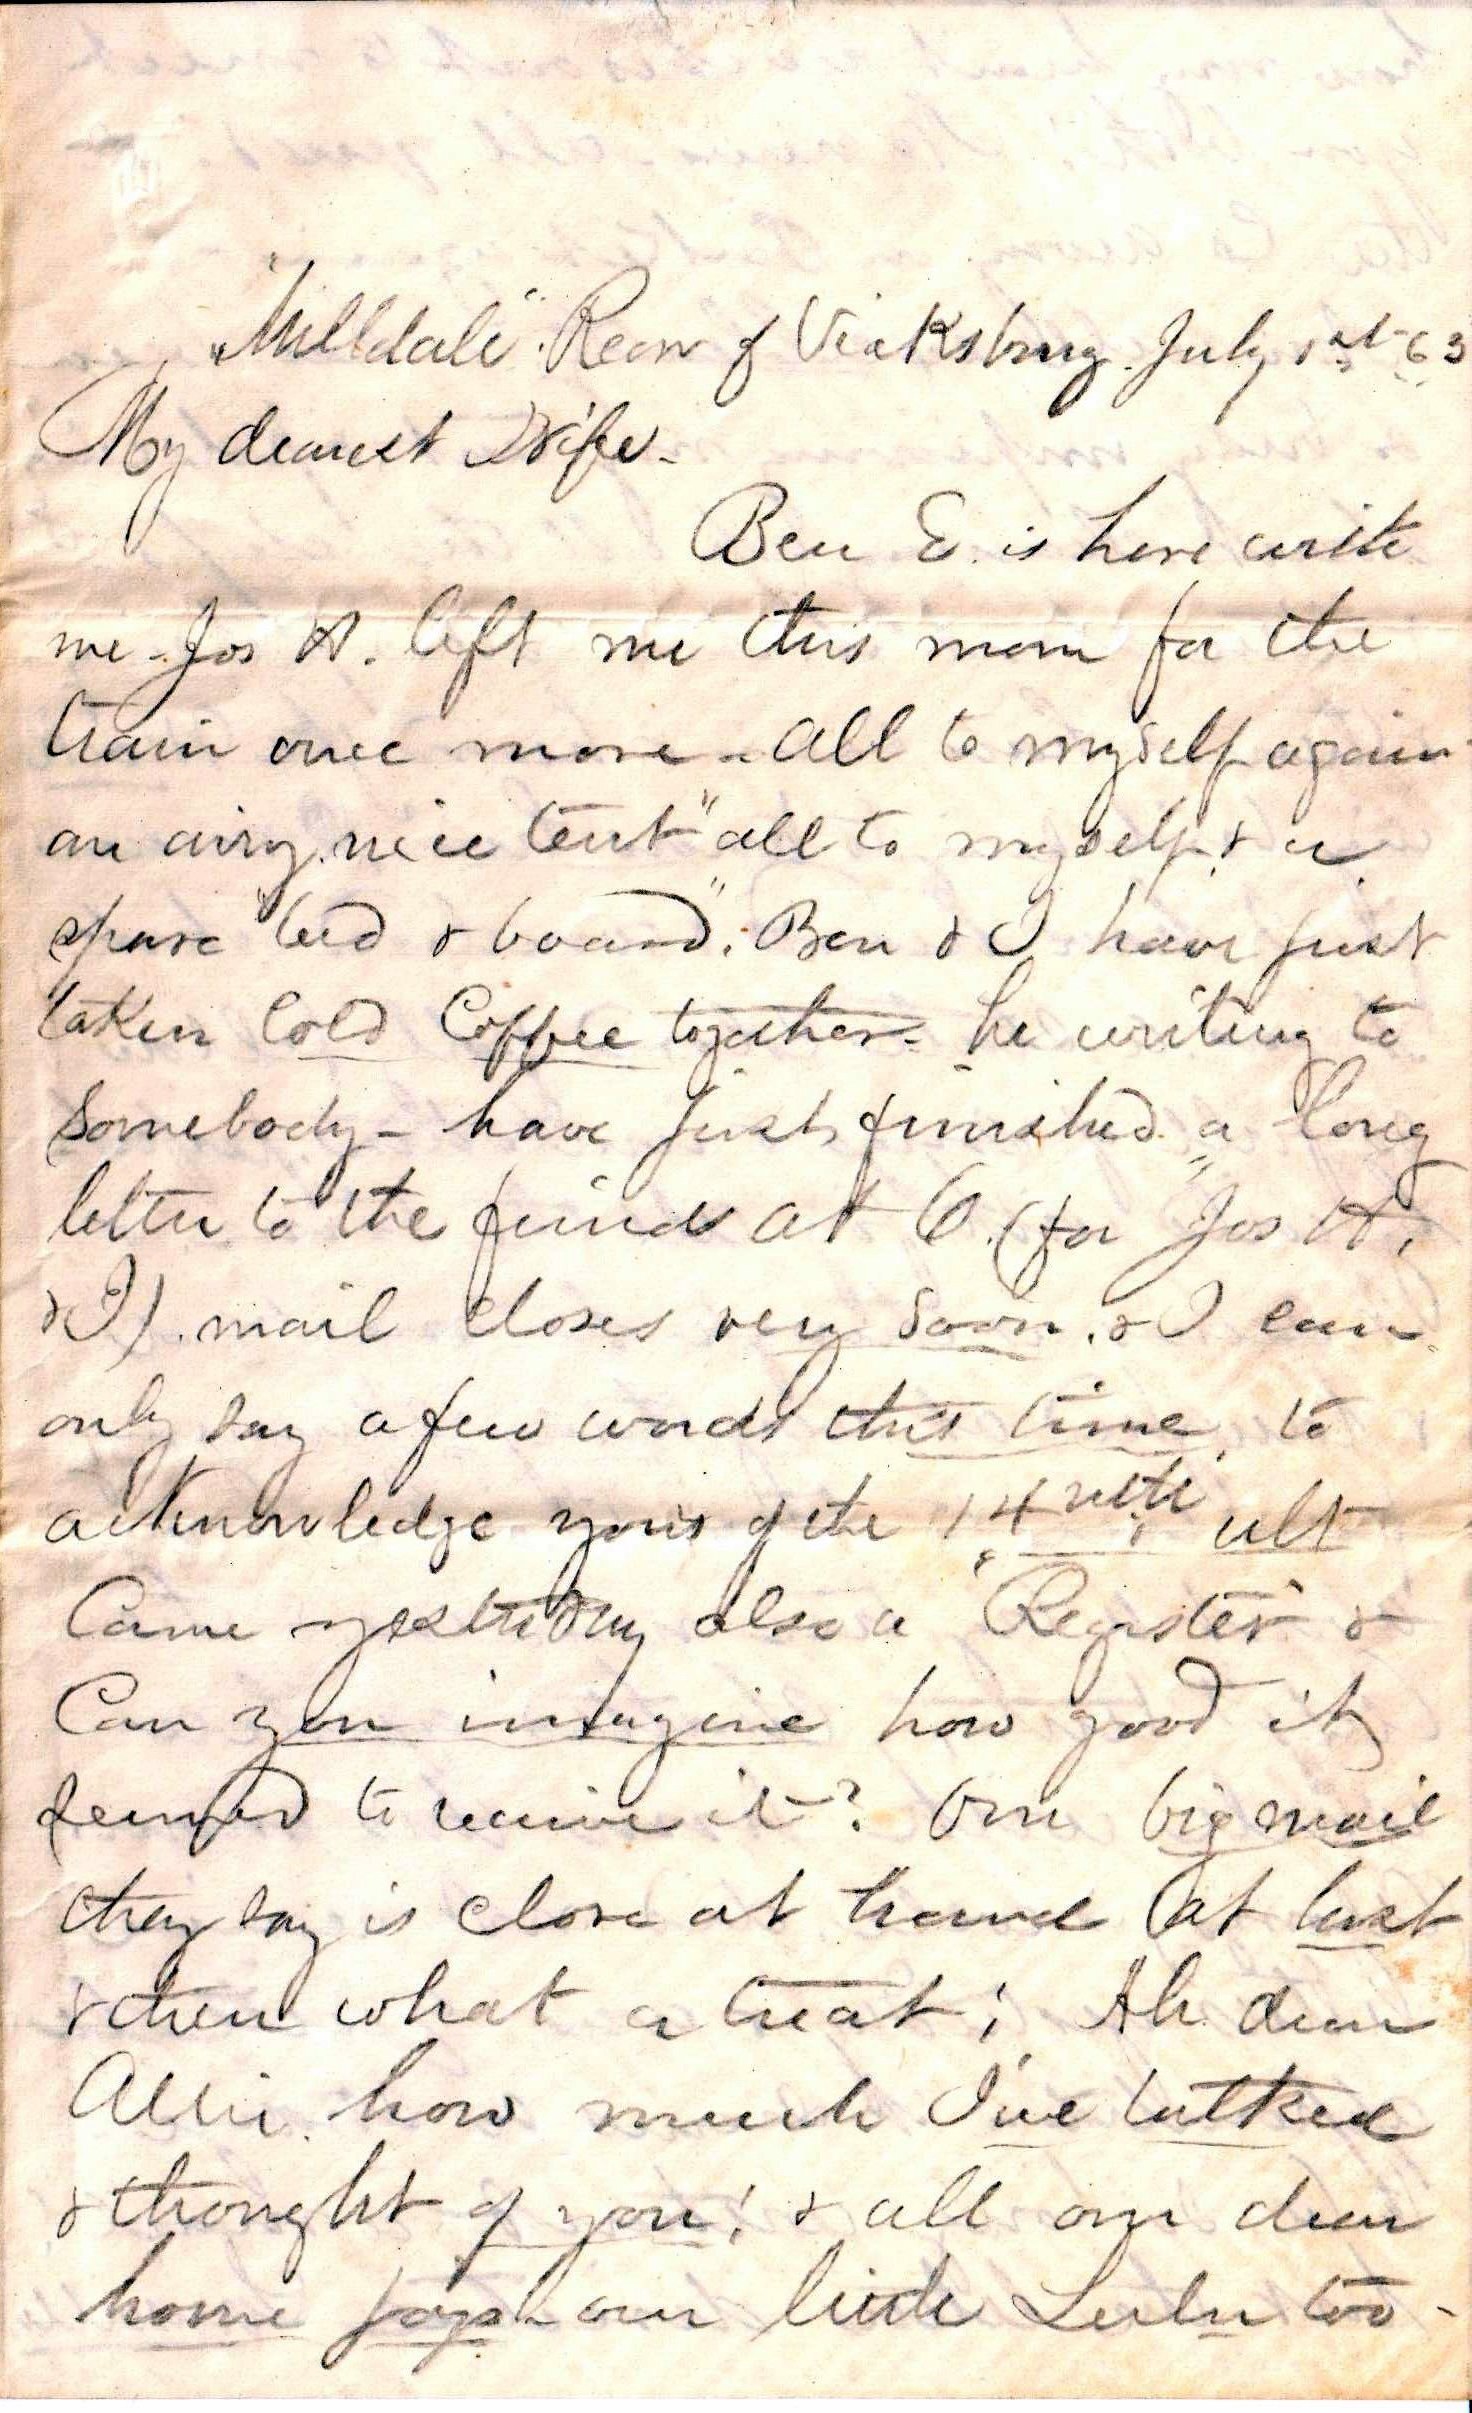 "Milldale" Rear of Vicksburg. July 1st 63
My dearest Wife -
Ben E. is here with
me - Jos A. left me this morn for the
train once more - all to myself again
an airy, nice tent "all to myself, & a
spare "bed & board". Ben & I have just
taken cold Coffee together - he writing to
somebody - have just finished a long
letter to the friends at C. (for Jos A,
& I). mail closes very soon. & I can
only say a few words this time, to
acknowledge yours of the 14 ulto ult
Came yesterday also a "Register" &
Can you imagine how good it
seemed to receive it? Our big mail
they say is close at hand at last
& then what a treat! Ah dear
Allie. how much I've talked
& thought of you! & all our dear
home joys - our little Lulu too -